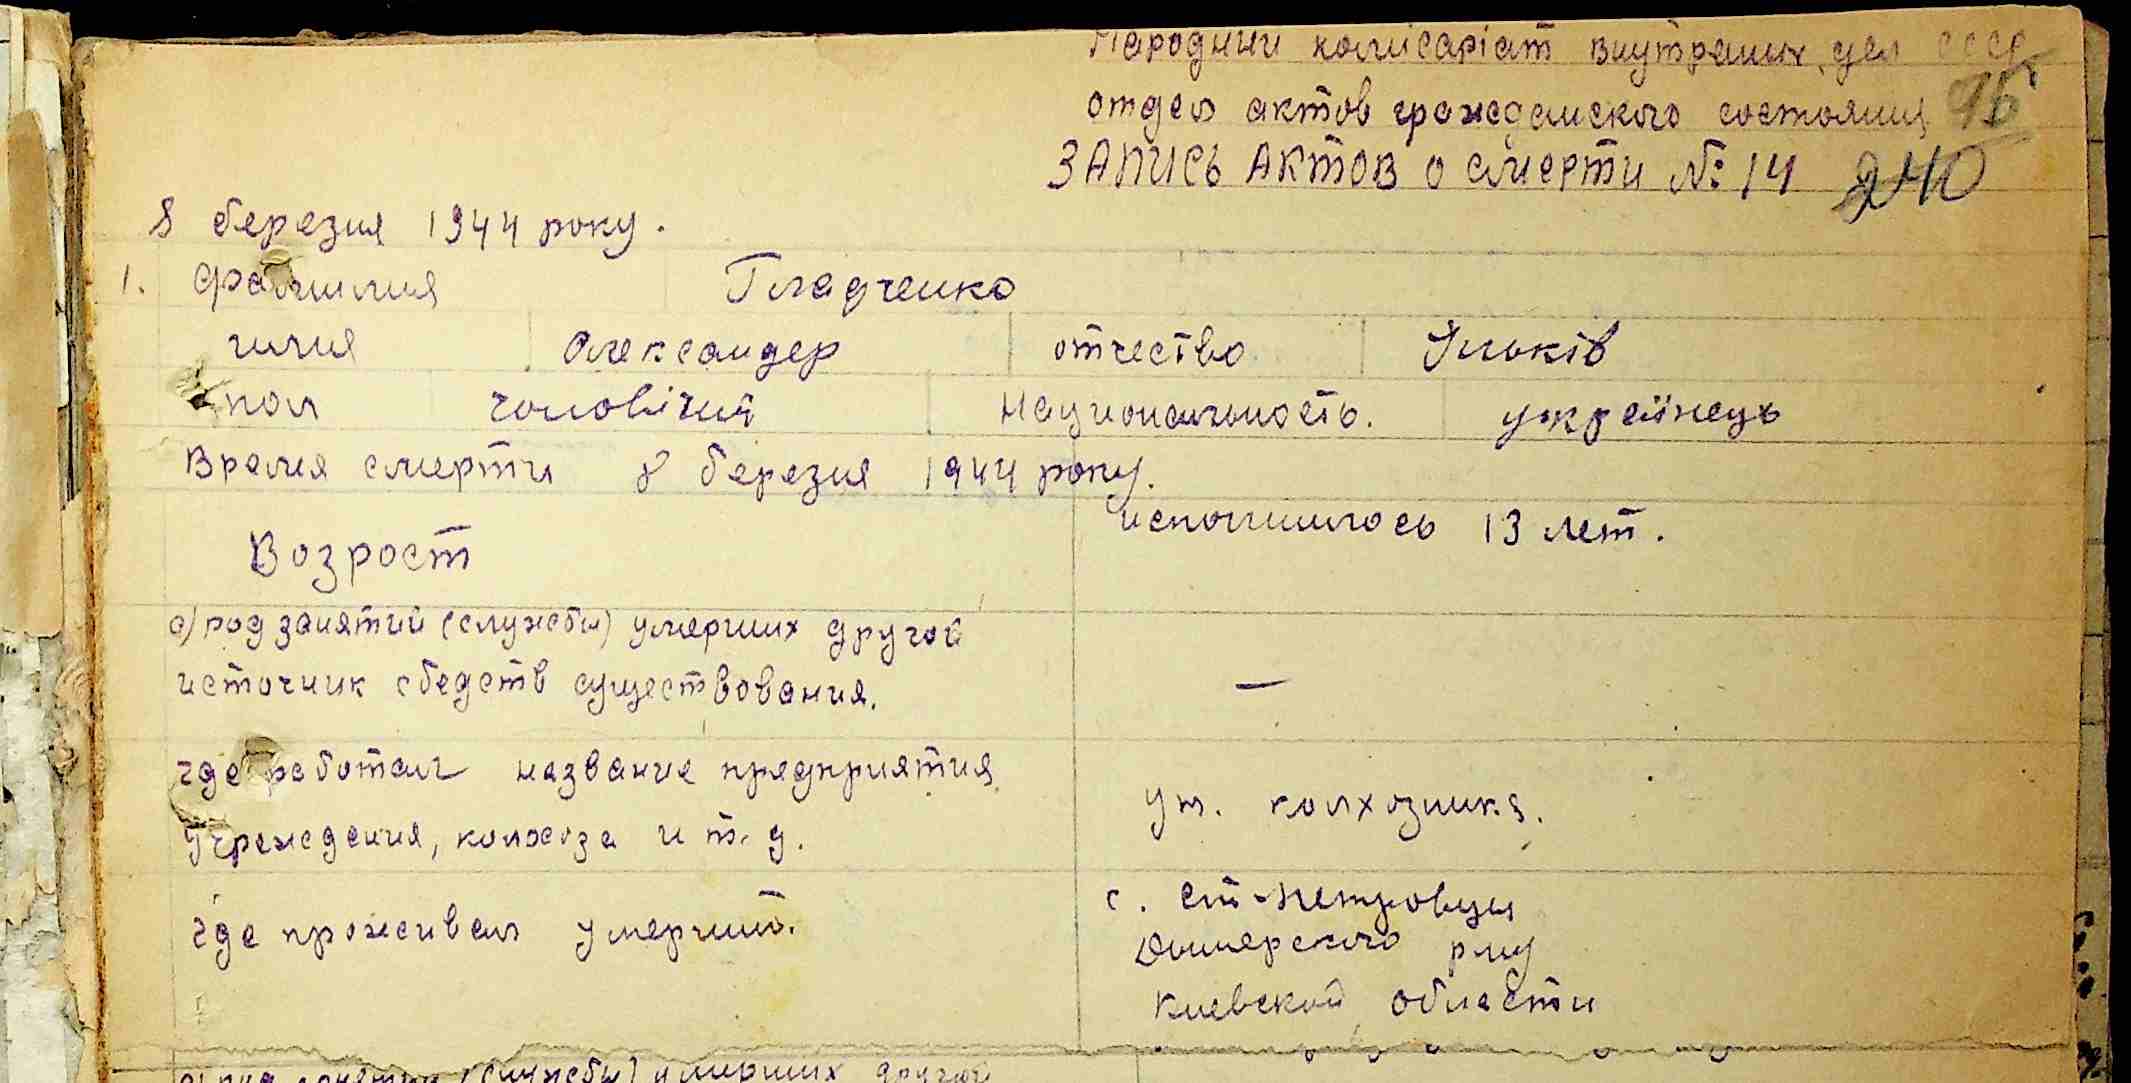 Народний комісаріат внутрених дел СССР
отдел актов гражданского состояния 95
ЗАПИСЬ АКТОВ о смерти №: 14 240
8 березня 1944 року.
1. фамилия Гладченко
имия Олександер отчество Ільків
пол чоловічий национальность. украінець
Время смерти 8 березня 1944 року.
Возрост исполнилось 13 лет.
а) род занятий (службы) умерших другой
источник сбедств существования. —
где работал название предприятия
Учреждения, колхоза и т. д. ут. колхозника.
где проживал умерший. с. Ст-Петровцы
Дымерского р-ну
Киевской области
а) род занятий (службы) умерших другой